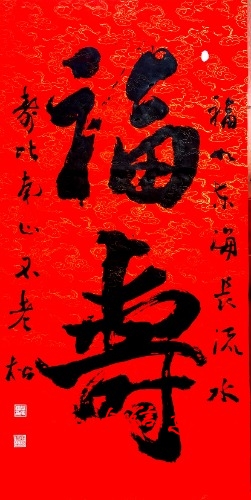 福如东海长流水
福
寿
寿比南山不老松